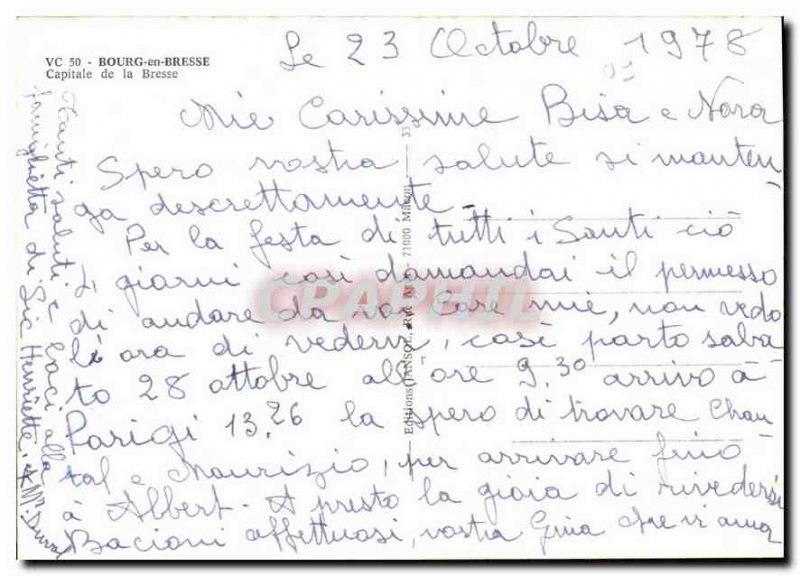 VC 50 - BOURG-en-BRESSE
Capitale de la Bresse
Le 23 Octobre 1978
Mie Carissime Bisa e Nora
Spero vostra salute si manten
ga descrettamente.
Per la festa di tutti i Santi ciò
4 giorni così domandai il permesso
di andare da voi Care mie, non vedo
l'ora di vedervi, casì parto saba
to 28 ottobre all'ore 9.30 arrivo à
Parigi 13.26 la spero di trovare Chan
tal e Maurizio, per arrivare fino
à Albert - A presto la gioia di rivedersi
Bacioni affettuosi, vostra Gina che vi ama
Tanti saluti e baci alla
famiglietta di Gio Henriette, Mr.
Editions JANSOL, Rue 71000 Mâcon
CPAPHIL